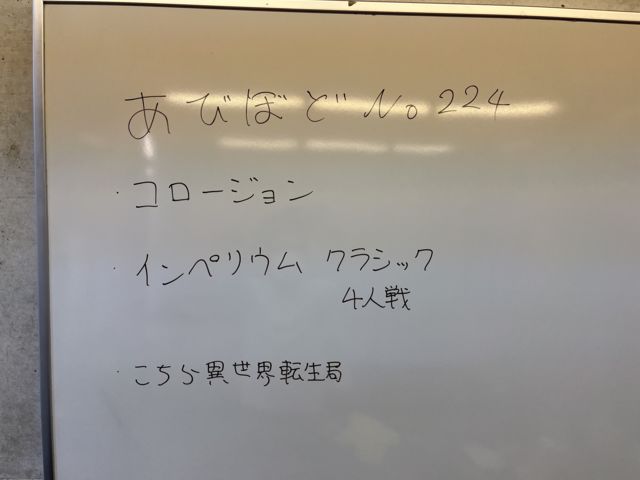 あびぼど No 224
・コロージョン
・インペリウム クラシック
4人戦
・こちら異世界転生局